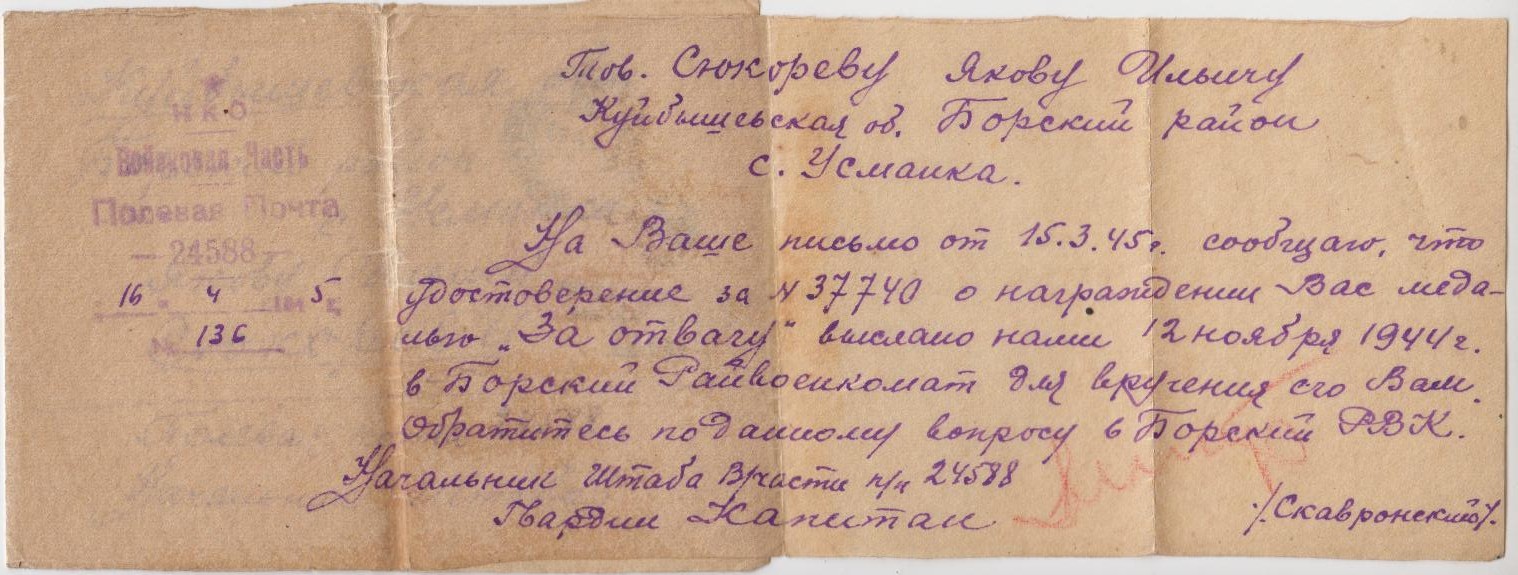 Тов. Сюкореву Якову Ильичу
Куйбышевская об. Борский район
с. Усманка.
НКО
Войсковая Часть
Полевая Почта
— 24588 —
„16" 4 1945 г.
№ 136
На Ваше письмо от 15.3.45г. сообщаю, что
удостоверение за № 37740 о награждении Вас меда-
лью „За отвагу" выслано нами 12 ноября 1944 г.
в Борский Райвоенкомат для вручения его Вам.
Обратитесь по данному вопросу в Борский РВК.
Начальник Штаба В/части п/п 24588
Гвардии Капитан /Скавронский/.